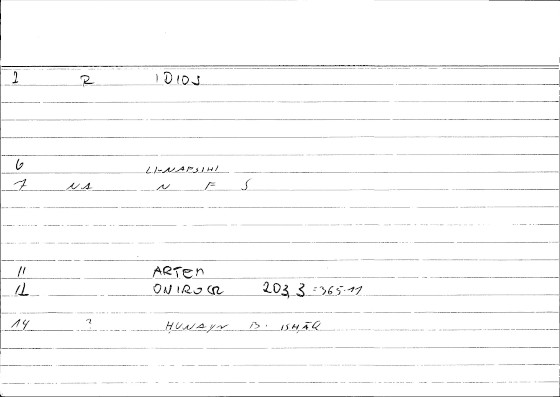 1 R IDIOS
6 LI-NAFSIHI
7 NA N F S
11 ARTEM
12 ONIROCR 203,3=365.11
14 ? HUNAYN B. ISHĀQ